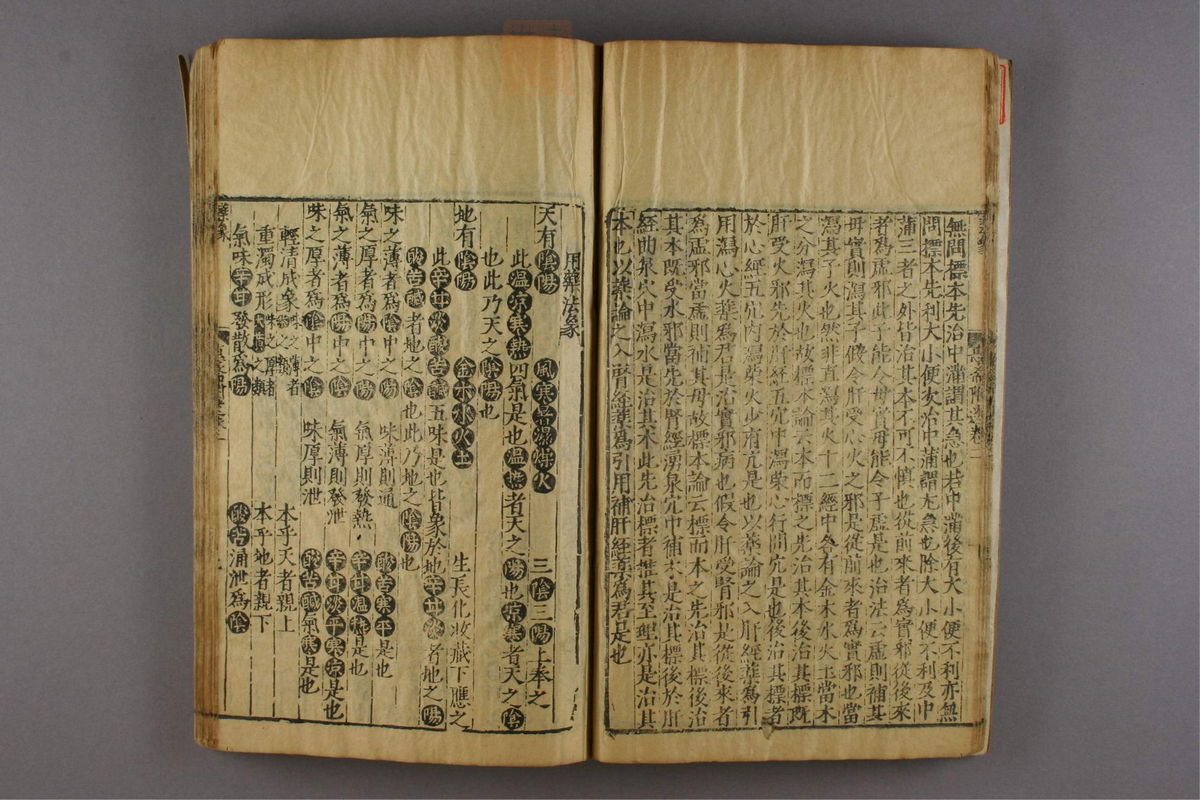 無問標本先治中滿謂其急也若中滿後有大小便不利亦無
問標本先利大小便次治中蒲謂尤急也除大小便不利及中
蒲三者之外皆治其本不可不慎也從前來者爲實邪從後來
者爲虛邪此子能令母實母能令子虛是也治法云虛則補其
母實則瀉其子假令肝受心火之邪是從前來者爲實邪也當
瀉其子火也然非直瀉其火十二經中各有金木水火土當木
之分瀉其火也故標本論云本而標之先治其本後治其標既
肝受火邪先於肝經五穴中瀉榮心行間穴是也後治其標者
於心經五穴内瀉榮火少府穴是也以藥論之入肝經藥爲引
用瀉心火藥爲君是治實邪病也假令肝受腎邪是從後來者
爲虛邪當虛則補其母故標本論云標而本之先治其標後治
其本既受水邪當先於腎經湧泉穴中補木是治其標後於肝
經曲泉穴中瀉水是治其本此先治標者推其至理亦是治其
本也以藥論之入腎經藥爲引用補肝經藥爲君是也
用藥法象
天有陰陽 風寒暑濕燥火 三陰三陽上奉之
此温凉寒熱四氣是也温熱者天之陽也凉寒者天之陰
也此乃天之陰陽也
地有陰陽 金木水火土 生長化收藏下應之
此辛甘淡酸苦鹹五味是也皆象於地辛甘淡者地之陽
酸苦鹹者地之陰也此乃地之陰陽也
味之薄者爲陰中之陽 味薄則通 酸苦寒平是也
氣之厚者爲陽中之陽 氣厚則發熱 辛甘温熱是也
氣之薄者爲陽中之陰 氣薄則發泄 辛甘淡平寒凉是也
味之厚者爲陰中之陰 味厚則泄 酸苦鹹氣寒是也
輕清成象 本乎天者親上
重濁成形 本乎地者親下
氣味辛甘發散爲陽 酸苦涌泄爲陰